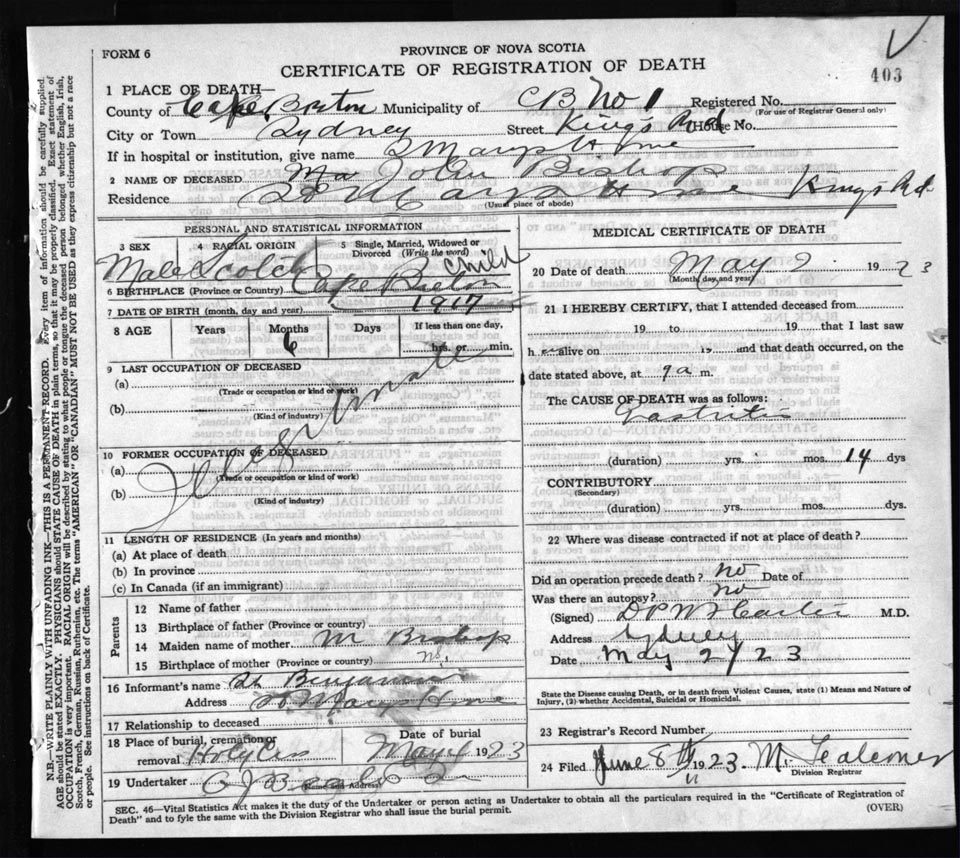 FORM 6
PROVINCE OF NOVA SCOTIA
CERTIFICATE OF REGISTRATION OF DEATH
403
1 PLACE OF DEATH—
County of Cape Breton Municipality of CB No 1 Registered No.
(For use of Registrar General only)
City or Town Sydney Street Kings Rd House No.
If in hospital or institution, give name St Marys Home
2 NAME OF DECEASED John Bishop
Residence St Marys Home Kings Rd
(Usual place of abode)
PERSONAL AND STATISTICAL INFORMATION
3 SEX 4 RACIAL ORIGIN 5 Single, Married, Widowed or Divorced (Write the word)
Male Scotch Child
6 BIRTHPLACE (Province or Country) Cape Breton
7 DATE OF BIRTH (month, day and year) 1917
8 AGE Years Months Days If less than one day,
6 hrs. or min.
9 LAST OCCUPATION OF DECEASED
(a)
(Trade or occupation or kind of work)
(b)
(Kind of industry)
10 FORMER OCCUPATION OF DECEASED
(a)
(Trade or occupation or kind of work)
(b)
(Kind of industry)
Illegitimate
11 LENGTH OF RESIDENCE (In years and months)
(a) At place of death
(b) In province
(c) In Canada (if an immigrant)
Parents
12 Name of father
13 Birthplace of father (Province or country)
14 Maiden name of mother M Bishop
15 Birthplace of mother (Province or country) NS.
16 Informant's name St Benjamin
Address St Marys Home
17 Relationship to deceased
18 Place of burial, cremation or removal Holy Cross Date of burial May 1923
19 Undertaker
(Name and Address)
MEDICAL CERTIFICATE OF DEATH
20 Date of death May 2 1923
(Month, day and year)
21 I HEREBY CERTIFY, that I attended deceased from
19 to 19 that I last saw
h alive on 19 and that death occurred, on the
date stated above, at 9 a m.
The CAUSE OF DEATH was as follows:
Gastritis
(duration) yrs. mos. 14 dys
CONTRIBUTORY
(Secondary)
(duration) yrs. mos. dys.
22 Where was disease contracted if not at place of death?
Did an operation precede death? no Date of
Was there an autopsy? no
(Signed) M.D.
Address Sydney
Date May 2/23
State the Disease causing Death, or in death from Violent Causes, state (1) Means and Nature of Injury, (2) whether Accidental, Suicidal or Homicidal.
23 Registrar's Record Number
24 Filed June 8th 1923
Division Registrar
SEC. 46—Vital Statistics Act makes it the duty of the Undertaker or person acting as Undertaker to obtain all the particulars required in the "Certificate of Registration of
Death" and to fyle the same with the Division Registrar who shall issue the burial permit.
(OVER)
N.B.—WRITE PLAINLY WITH UNFADING INK—THIS IS A PERMANENT RECORD. Every item of information should be carefully supplied.
AGE should be stated EXACTLY. PHYSICIANS should STATE CAUSE OF DEATH in plain terms, so that it may be properly classified. Exact statement of
OCCUPATION is very important. RACIAL ORIGIN will be described by stating to what people or tongue the deceased person belonged whether English, Irish,
Scotch, French, German, Russian, Ruthenian, etc. The terms "AMERICAN" OR "CANADIAN" MUST NOT BE USED as they express citizenship but not a race
or people. See instructions on back of Certificate.